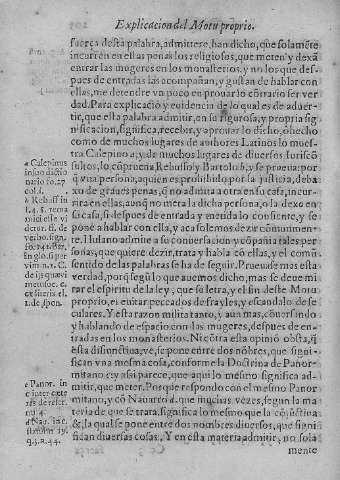 Explicacion del Motu proprio.
fuerça desta palabra, admittere, han dicho, que solamẽte
incurren en estas penas los religiosos, que meten y dexã
entrar las mugeres en los monasterios, y no los que des-
pues de entradas las acompañan, y gustan de hablar con
ellas, me detendre vn poco en prouar lo cõtrario ser ver
dad. Para explicaciõ y euidencia de lo qual es de aduer-
tir, que esta palabra admitir, en su rigurosa, y propria sig
nificacion, significa, recebir, y aprouar lo dicho, o hecho
como de muchos lugares de authores Latinos lo mues-
tra Calepino a, y de muchos lugares de diuersos Iuriscõ
sultos, lo cõprueua Rebuffo b, y Bartolo c, y se prueua por
q̃ vna persona, a quien es prohibido por la justicia, deba
xo de graues penas, q̃ no admita a otra en su casa, incur-
rira en ellas, aunq̃ no meta la dicha persona, o la dexe en
si casa, si despues de entrada y metida lo consiente, y se
pone a hablar con ella, y aca solemos dezir cõmunmen-
te. Fulano admite a su conuersacion y cõpañia tales per
sonas, que quiere dezir, trata y habla cõ ellas, y el comũ
sentido de las palabras se ha de seguir. Prueuase mas esta
verdad, porq̃ segũ lo que auemos dicho, mas se deue mi
rar el espiritu de la ley, que su letra, y el fin deste Motu
proprio, es euitar peccados de frayles, y escandalo de se
culares. Y esta razon milita tanto, y aun mas, cõuersando
y hablando de espacio con las mugeres, despues de en-
tradas en los monasterios. Ni cõtra esta opiniõ obsta, q̃
esta disjunctiua, ve, se pone entre dos nõbres, que signi-
fican vna mesma cosa, conforme la Doctrina de Panor-
mitano e, y assi parece, que aqui lo mesmo significa ad-
mitir, que meter. Porque respondo con el mesmo Panor
mitano, y cõ Nauarro d. que muchas vezes, segun la ma
teria de que se trata, significa lo mesmo que la cõjũctina
&, la qual se pone entre dos nombres diuersos, que signi
fican diuersas cosas. Y en esta materia admitir, no sola
mente
a Calepinus
in suo dictio
nario fo. 27
col. 1.
b Rebuff in
l. 4. §. rema
vim. 1. C.
e Panor. in